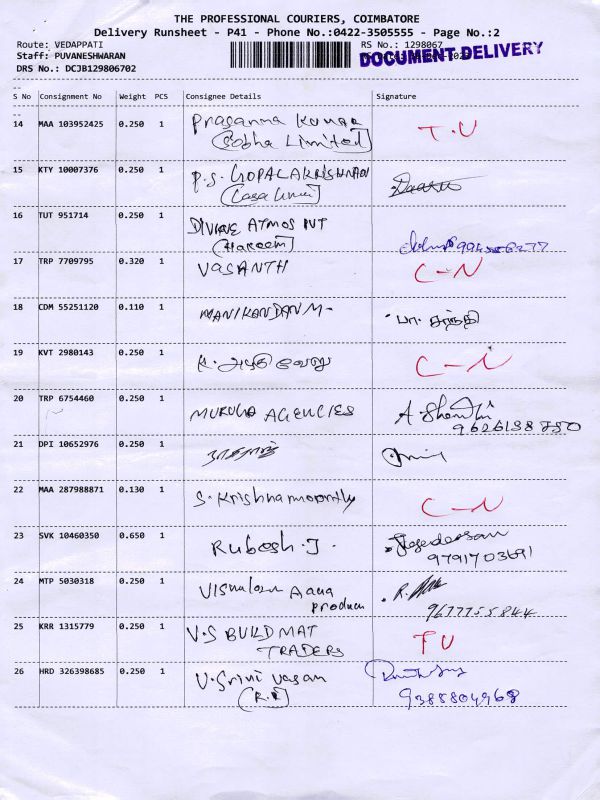 THE PROFESSIONAL COURIERS, COIMBATORE
Delivery Runsheet - P41 - Phone No.:0422-3505555 - Page No.:2
Route: VEDAPPATI
RS No.: 1298067
Staff: PUVANESHWARAN
DOCUMENT DELIVERY
DRS No.: DCJB129806702
S No Consignment No Weight PCS Consignee Details Signature
14 MAA 103952425 0.250 1 Prasanna Kumar T.U
(Sobha Limited)
15 KTY 10007376 0.250 1 P.S. GOPALAKRISHNAN
16 TUT 951714 0.250 1 DIVINE ATMOS PVT
(Hakeem)
17 TRP 7709795 0.320 1 VASANTH C-N
18 CDM 55251120 0.110 1 MANIKANDAN M-
19 KVT 2980143 0.250 1 C-N
20 TRP 6754460 0.250 1 MURUGA AGENCIES A. Shanthi
21 DPI 10652976 0.250 1
22 MAA 287988871 0.130 1 S. Krishnamoorthy C-N
23 SVK 10460350 0.650 1 Rubesh.J.
9791703691
24 MTP 5030318 0.250 1 R.
9677755844
25 KRR 1315779 0.250 1 V.S BUILDMAT TU
TRADERS
26 HRD 326398685 0.250 1 V. Srinivasan
(R.R) 9385804968